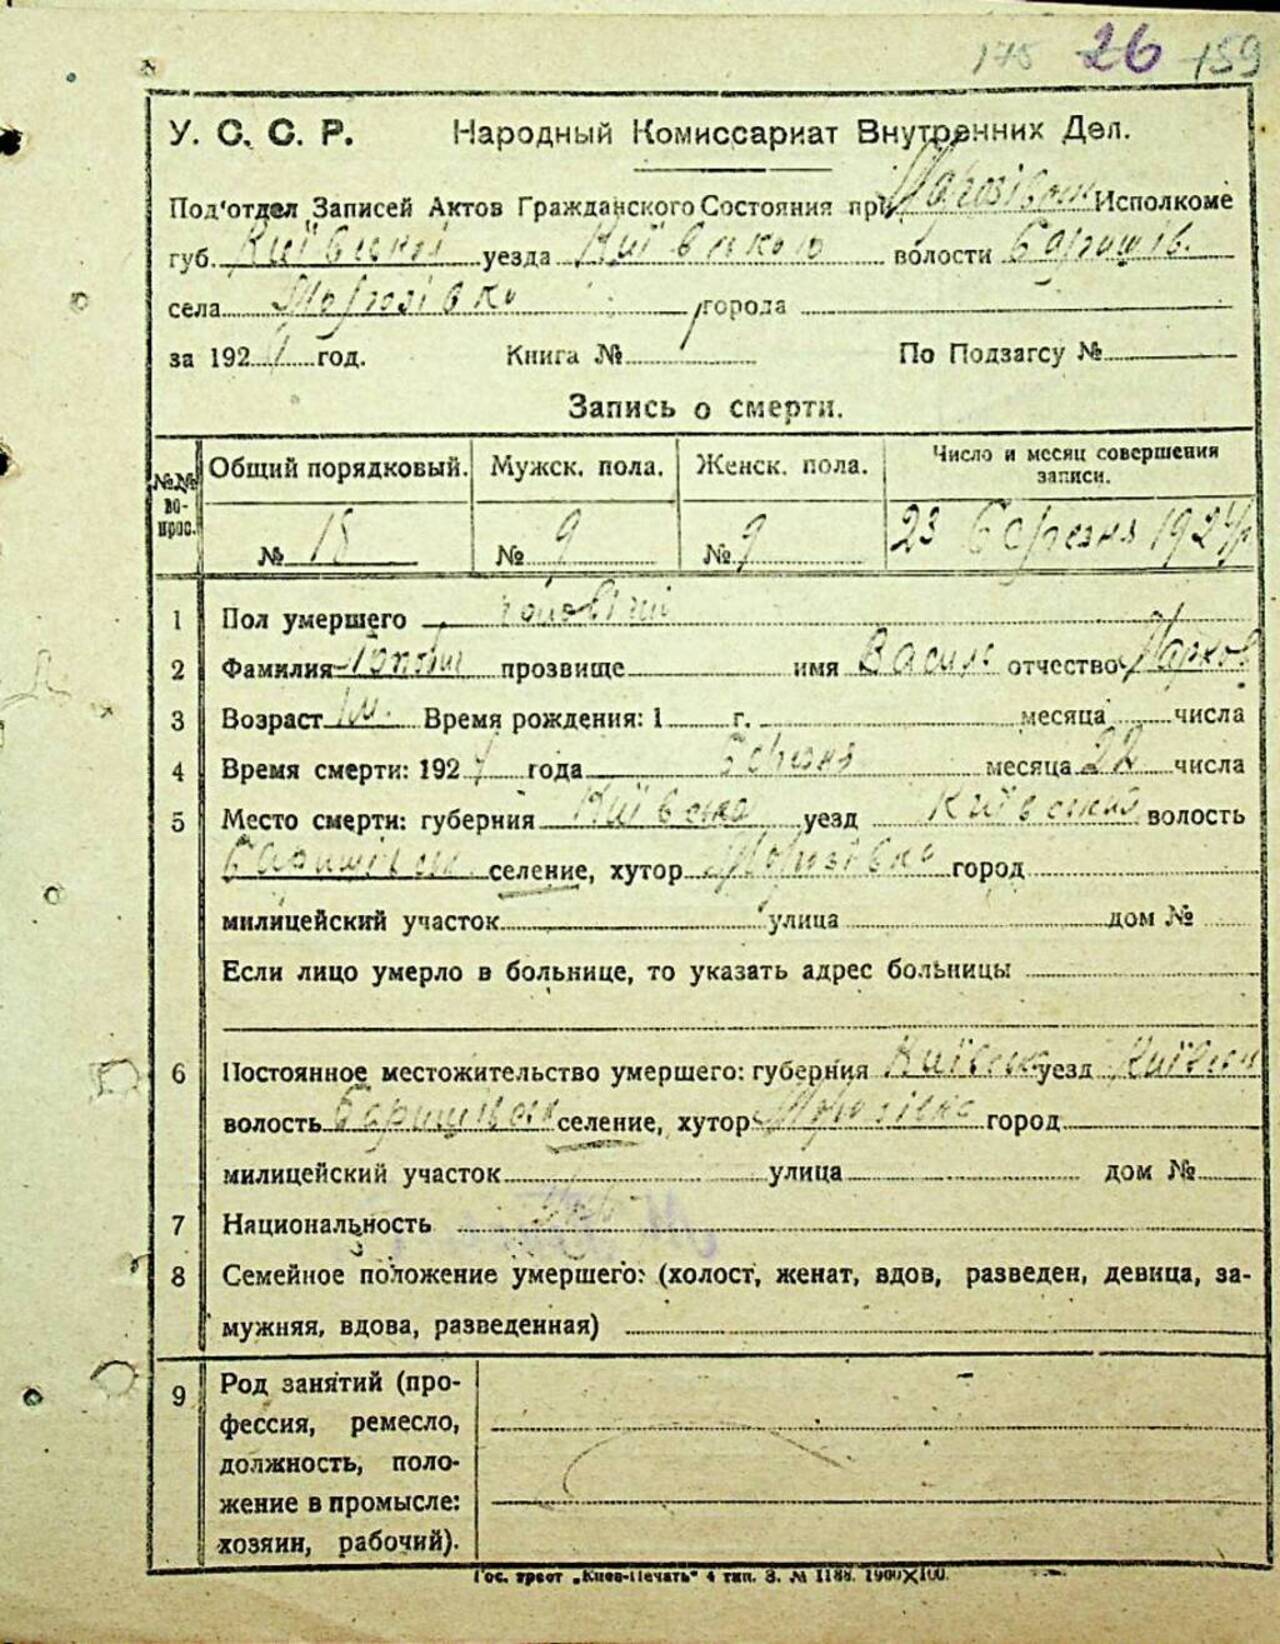 175 26 159
У. С. С. Р. Народный Комиссариат Внутренних Дел.
Под'отдел Записей Актов Гражданского Состояния при Исполкоме
губ. Київської уезда Київського волости Баришів.
села Морозівка города
за 1924 год. Книга № По Подзагсу №
Запись о смерти.
№№ вопрос. Общий порядковый. Мужск. пола. Женск. пола. Число и месяц совершения записи.
№ 18 № 9 № 9 23 березня 1924 р
1 Пол умершего чоловічий
2 Фамилия прозвище имя Василь отчество Марков
3 Возраст 1 м. Время рождения: 1 г. месяца числа
4 Время смерти: 1924 года березня месяца 22 числа
5 Место смерти: губерния Київська уезд Київський волость
селение, хутор Морозівка город
милицейский участок улица дом №
Если лицо умерло в больнице, то указать адрес больницы
6 Постоянное местожительство умершего: губерния Київськ уезд Київськ
волость селение, хутор Морозівка город
милицейский участок улица дом №
7 Национальность
8 Семейное положение умершего: (холост, женат, вдов, разведен, девица, за-
мужняя, вдова, разведенная)
9 Род занятий (про-
фессия, ремесло,
должность, поло-
жение в промысле:
хозяин, рабочий).
Гос. трест „Киев-Печать“ 4 тип. З. № 1188. 1900X100.